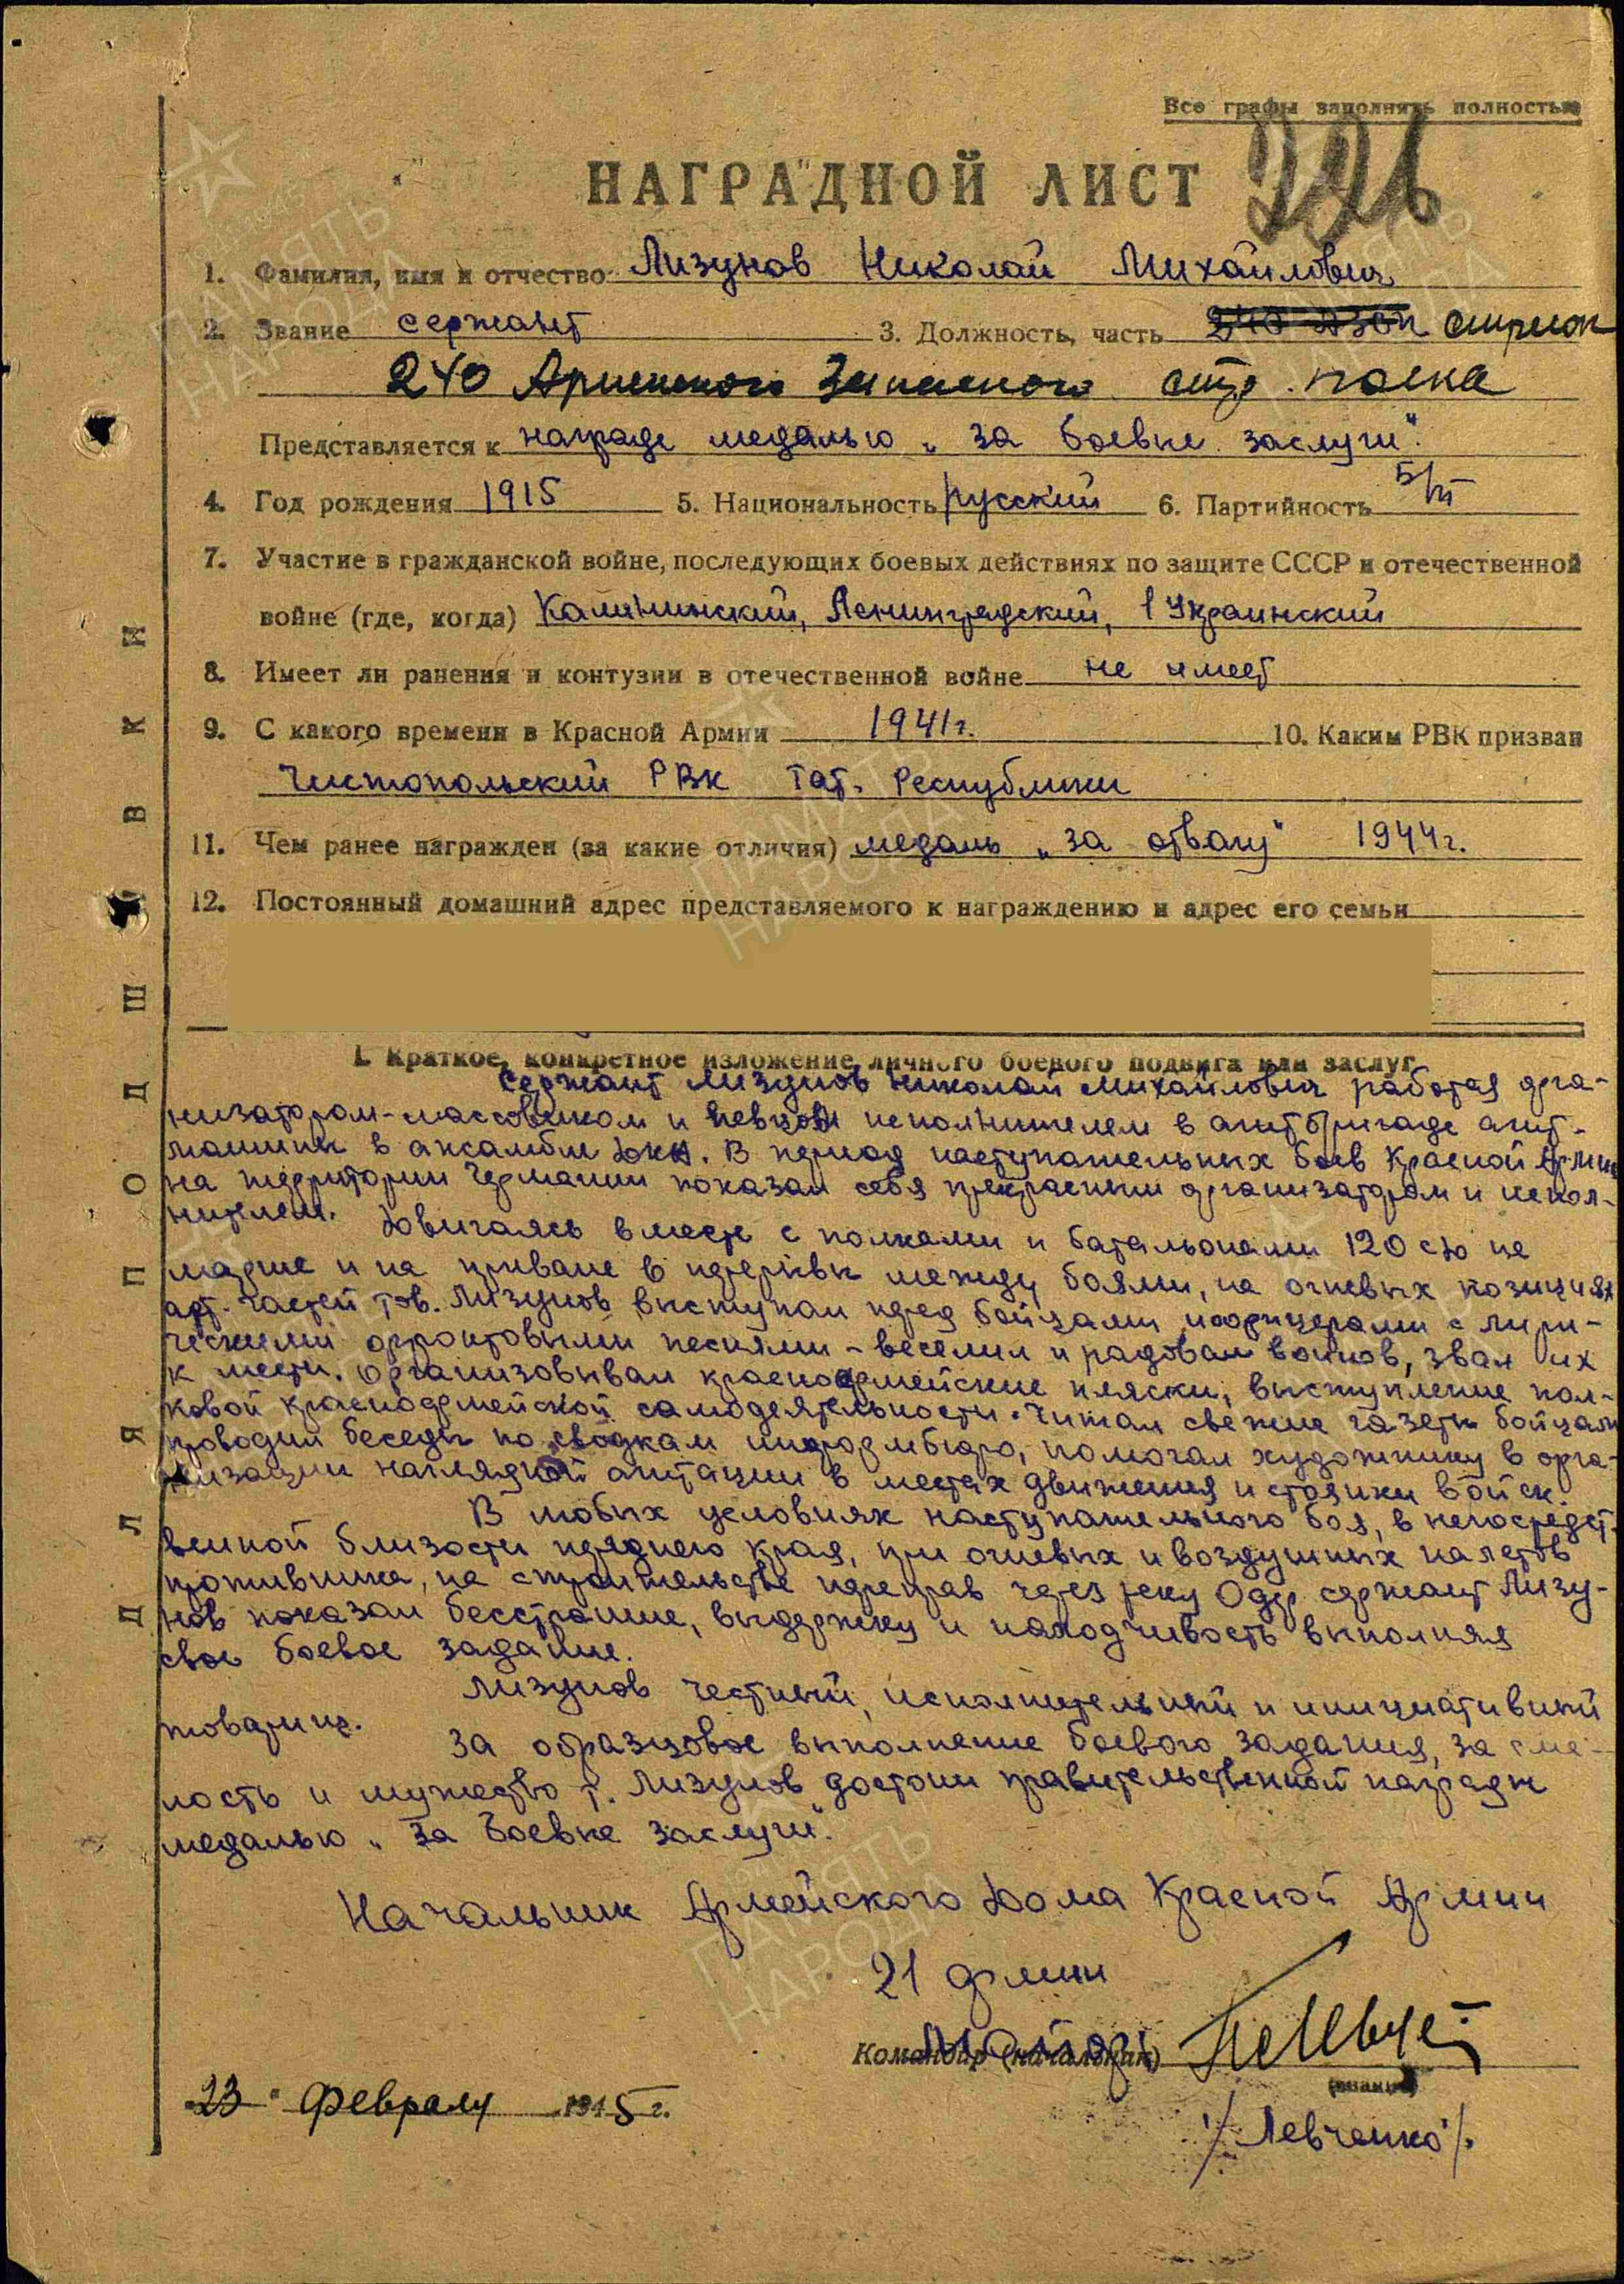 Все графы заполнять полностью
НАГРАДНОЙ ЛИСТ
1. Фамилия, имя и отчество Лизунов Николай Михайлович
2. Звание сержант 3. Должность, часть 240 АЗСП стрелок
240 Армейского Запасного стр. полка
Представляется к награде медалью „за боевые заслуги".
4. Год рождения 1915 5. Национальность русский 6. Партийность б/п
7. Участие в гражданской войне, последующих боевых действиях по защите СССР и отечественной
войне (где, когда) Калининский, Ленинградский, 1 Украинский
8. Имеет ли ранения и контузии в отечественной войне не имеет
9. С какого времени в Красной Армии 1941г. 10. Каким РВК призван
Чистопольский РВК Тат. Республики
11. Чем ранее награжден (за какие отличия) медаль „за отвагу" 1944г.
12. Постоянный домашний адрес представляемого к награждению и адрес его семьи
I. Краткое, конкретное изложение личного боевого подвига или заслуг
Сержант Лизунов Николай Михайлович работая орга-
низатором-массовиком и певцом исполнителем в агитбригаде агит-
машины в ансамбле ДКА. В период наступательных боев Красной Армии
на территории Германии показал себя прекрасным организатором и испол-
нителем. Двигаясь вместе с полками и батальонами 120 сд на
марше и на привале в перерывы между боями, на огневых позициях
арт. частей тов. Лизунов выступал перед бойцами и офицерами с лири-
ческими фронтовыми песнями - веселил и радовал воинов, звал их
к мести. Организовывал красноармейские пляски, выступление пол-
ковой красноармейской самодеятельности. Читал свежие газеты бойцам
проводил беседы по сводкам информбюро, помогал художнику в орга-
низации наглядной агитации в местах движения и стоянки войск.
В любых условиях наступательного боя, в непосредст-
венной близости переднего края, при огневых и воздушных налетов
противника, на строительстве переправ через реку Одер сержант Лизу-
нов показал бесстрашие, выдержку и находчивость выполняя
свое боевое задание.
Лизунов честный, исполнительный и инициативный
товарищ.
За образцовое выполнение боевого задания, за сме-
лость и мужество т. Лизунов достоин правительственной награды
медалью „За Боевые заслуги".
Начальник Армейского Дома Красной Армии
21 армии
Командир (начальник) майор
(подпись)
/Левченко/.
„23" февраля 1945 г.
ДЛЯ ПОДШИВКИ
ПАМЯТЬ НАРОДА